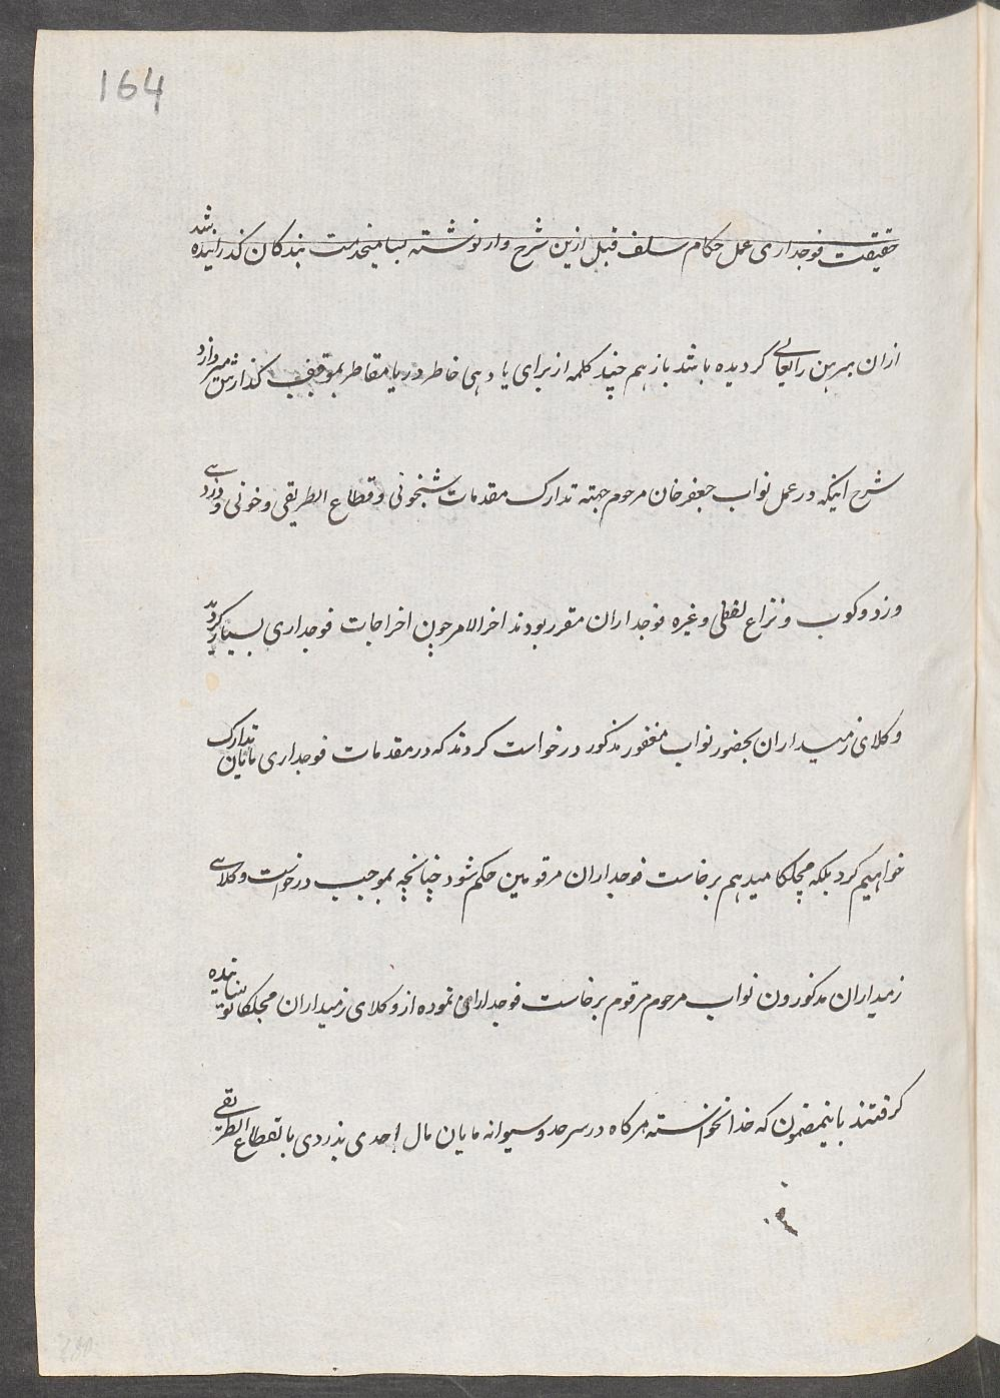 164
حقیقت فوجداری عمل حکام سلف قبل ازین شرح وار نوشته بخدمت بندکان کذرانیده شد
ازان مبرهن رایعالی کردیده باشد بازهم چند کلمه از برای یاد دهی خاطر دریا مقاطر بموقف کذارش می‌آرد
شرح اینکه در عمل نواب جعفر خان مرحوم جهته تدارک مقدمات شبخونی و قطاع الطریقی و خونی و دزدی
و زد و کوب و نزاع لفظی و غیره فوجداران مقرر بودند اخر الامر چون اخراجات فوجداری بسیار کردید
وکلای زمیداران بحضور نواب مغفور مذکور درخواست کردند که در مقدمات فوجداری مایان تدارک
خواهیم کرد بلکه مچلکا میدهم برخاست فوجداران مرقومین حکم شود چنانچه بموجب درخواست وکلای
زمیداران مذکورون نواب مرحوم مرقوم برخاست فوجداران نموده از وکلای زمیداران مچلکا نویسانیده
کرفتند باینمضمون که خدانخواسته هرکاه در سرحد و سیوانه مایان مال احدی بدزدی یا بقطاع الطریقی